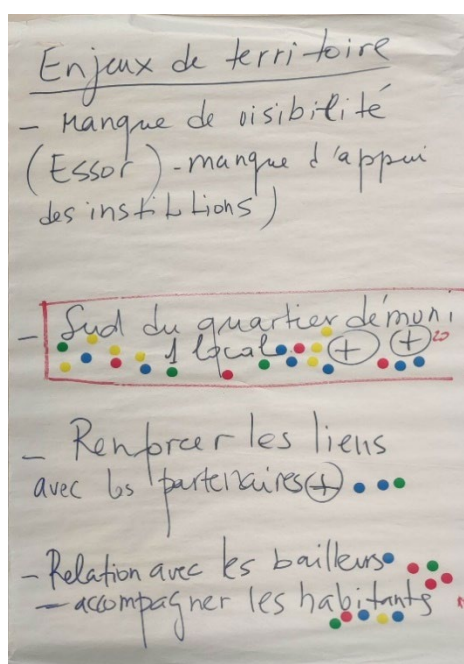 Enjeux de territoire
- Manque de visibilité
(Essor) - manque d'appui
des institutions)
- Sud du quartier démuni
1 local + + 20
- Renforcer les liens
avec les partenaires +
- Relation avec les bailleurs
- accompagner les habitants